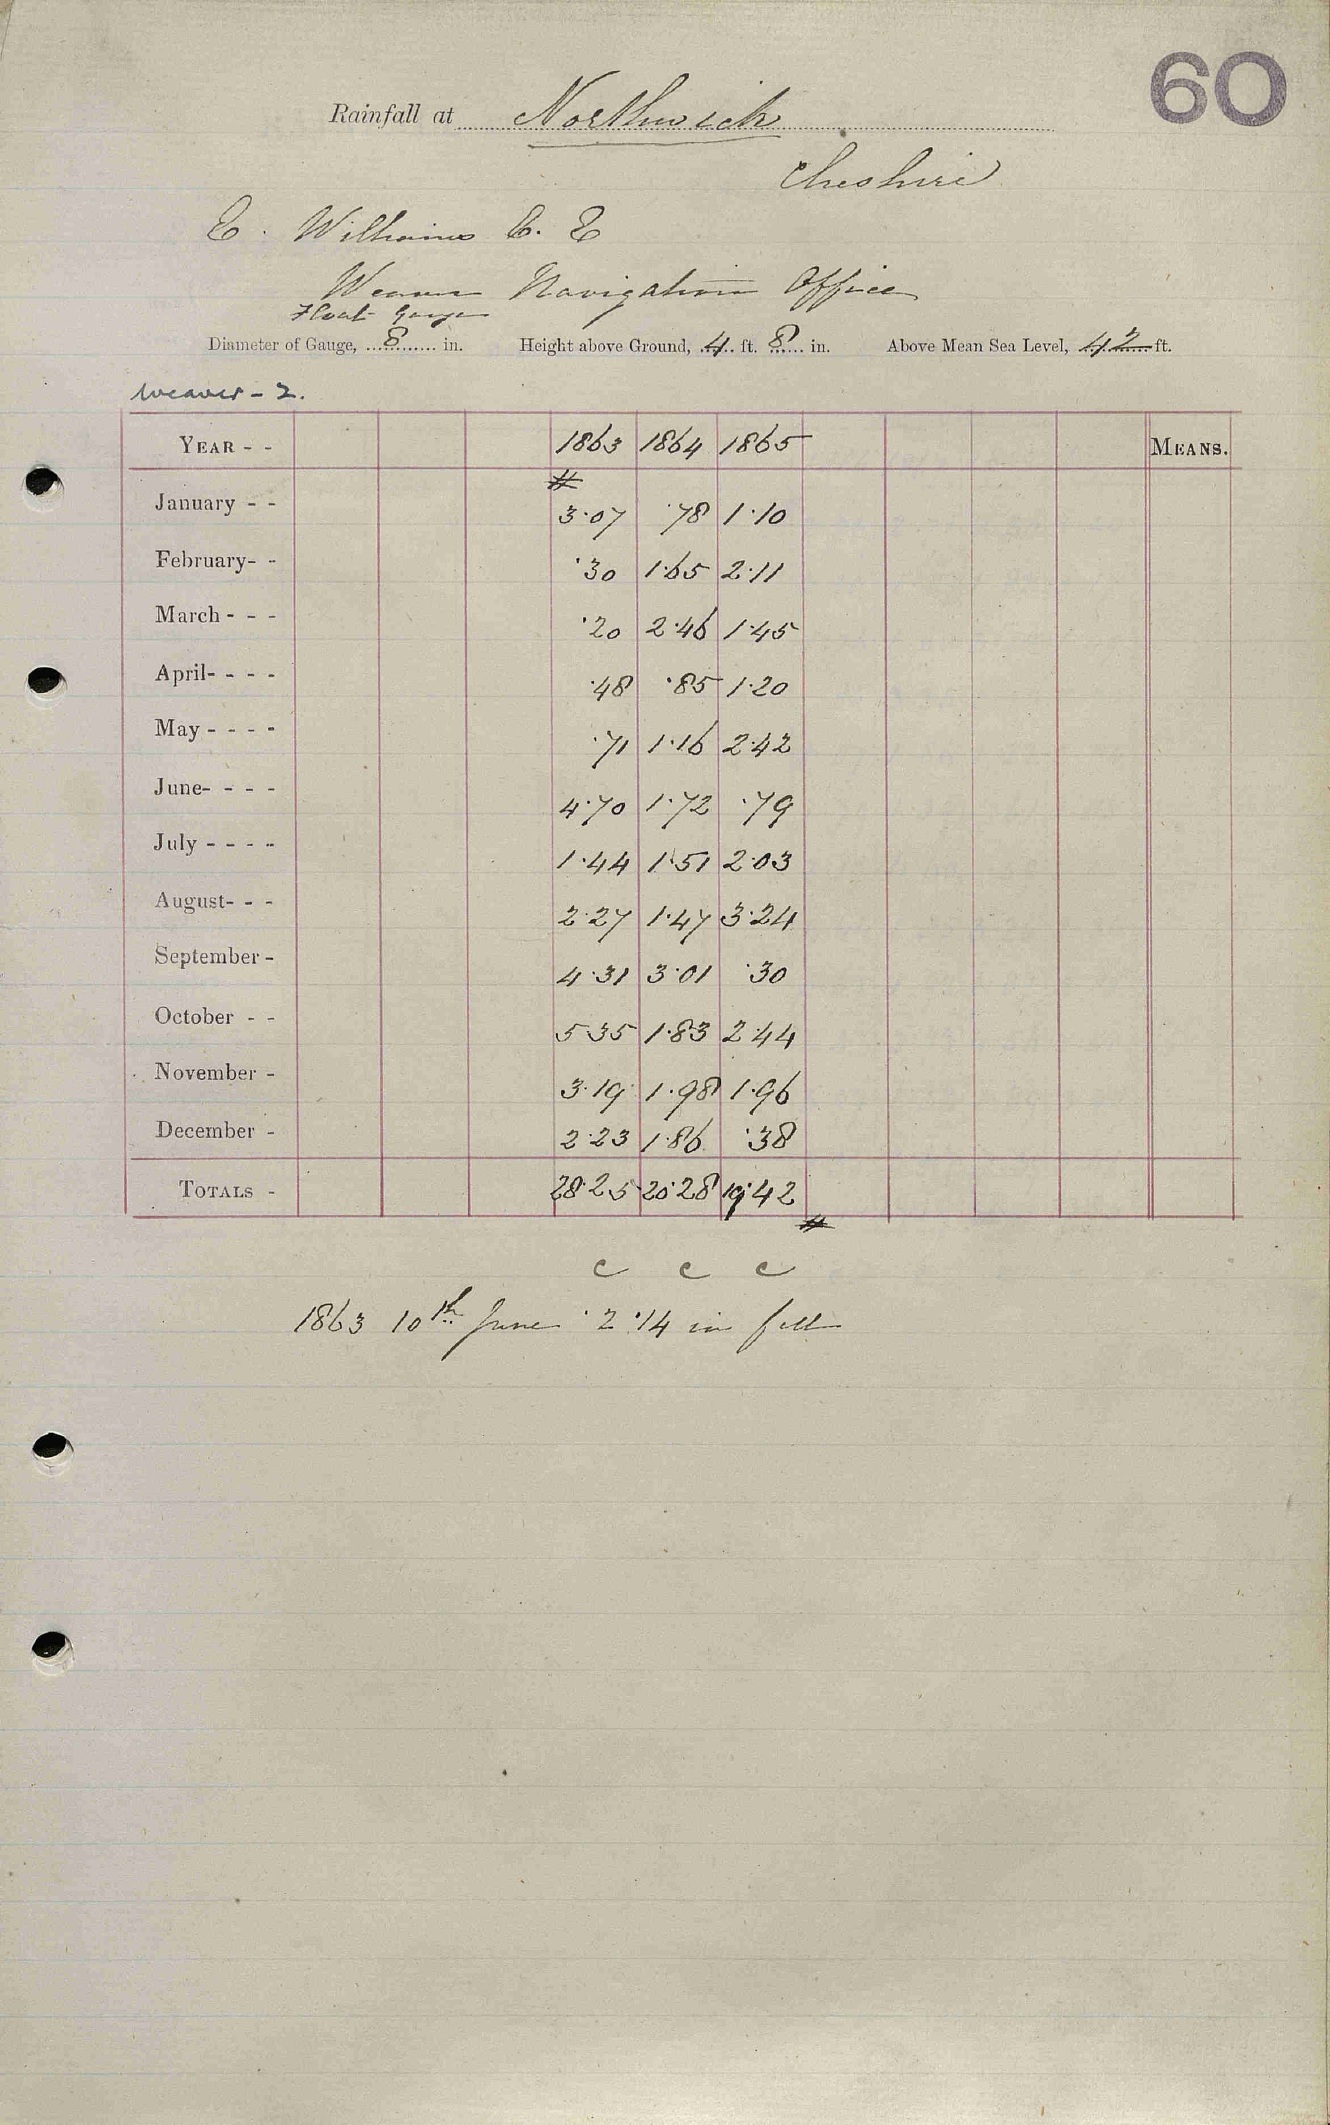 60
Rainfall at Northwich
Cheshire
E. Williams C. E
Weaver Navigation Office
Float Gauge
Diameter of Gauge, 8 in. Height above Ground, 4 ft. 8 in. Above Mean Sea Level, 42 ft.
Weaver - 2.
YEAR - - 1863 1864 1865 MEANS.
January - - 3.07 .78 1.10
February- - .30 1.65 2.11
March - - - .20 2.46 1.45
April- - - - .48 .85 1.20
May - - - - .71 1.16 2.42
June- - - - 4.70 1.72 .79
July - - - - 1.44 1.51 2.03
August- - - 2.27 1.47 3.24
September - 4.31 3.01 .30
October - - 5 35 1.83 2.44
November - 3.19 1.98 1.96
December - 2.23 1.86 .38
TOTALS - 28.25 20.28 19.42
c c c
1863 10th June 2.14 in fell